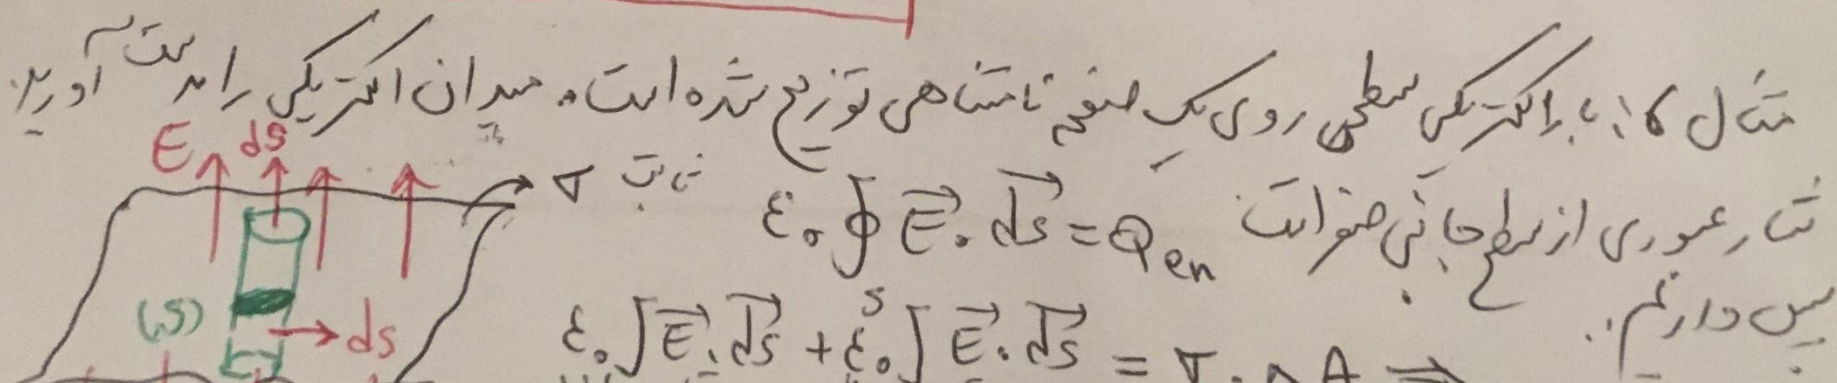 مثال ۶: بار الکتریکی سطحی روی یک صفحه نامتناهی توزیع شده است. میدان الکتریکی را بدست آورید.
E ds
σ ثابت
شار عبوری از سطح جانبی صفر است ε₀∮E⃗.ds⃗=Q_en
پس داریم:
(S)
ds
ε₀∫E⃗.ds⃗ + ε₀∫E⃗.ds⃗ = σ.ΔA ⇒